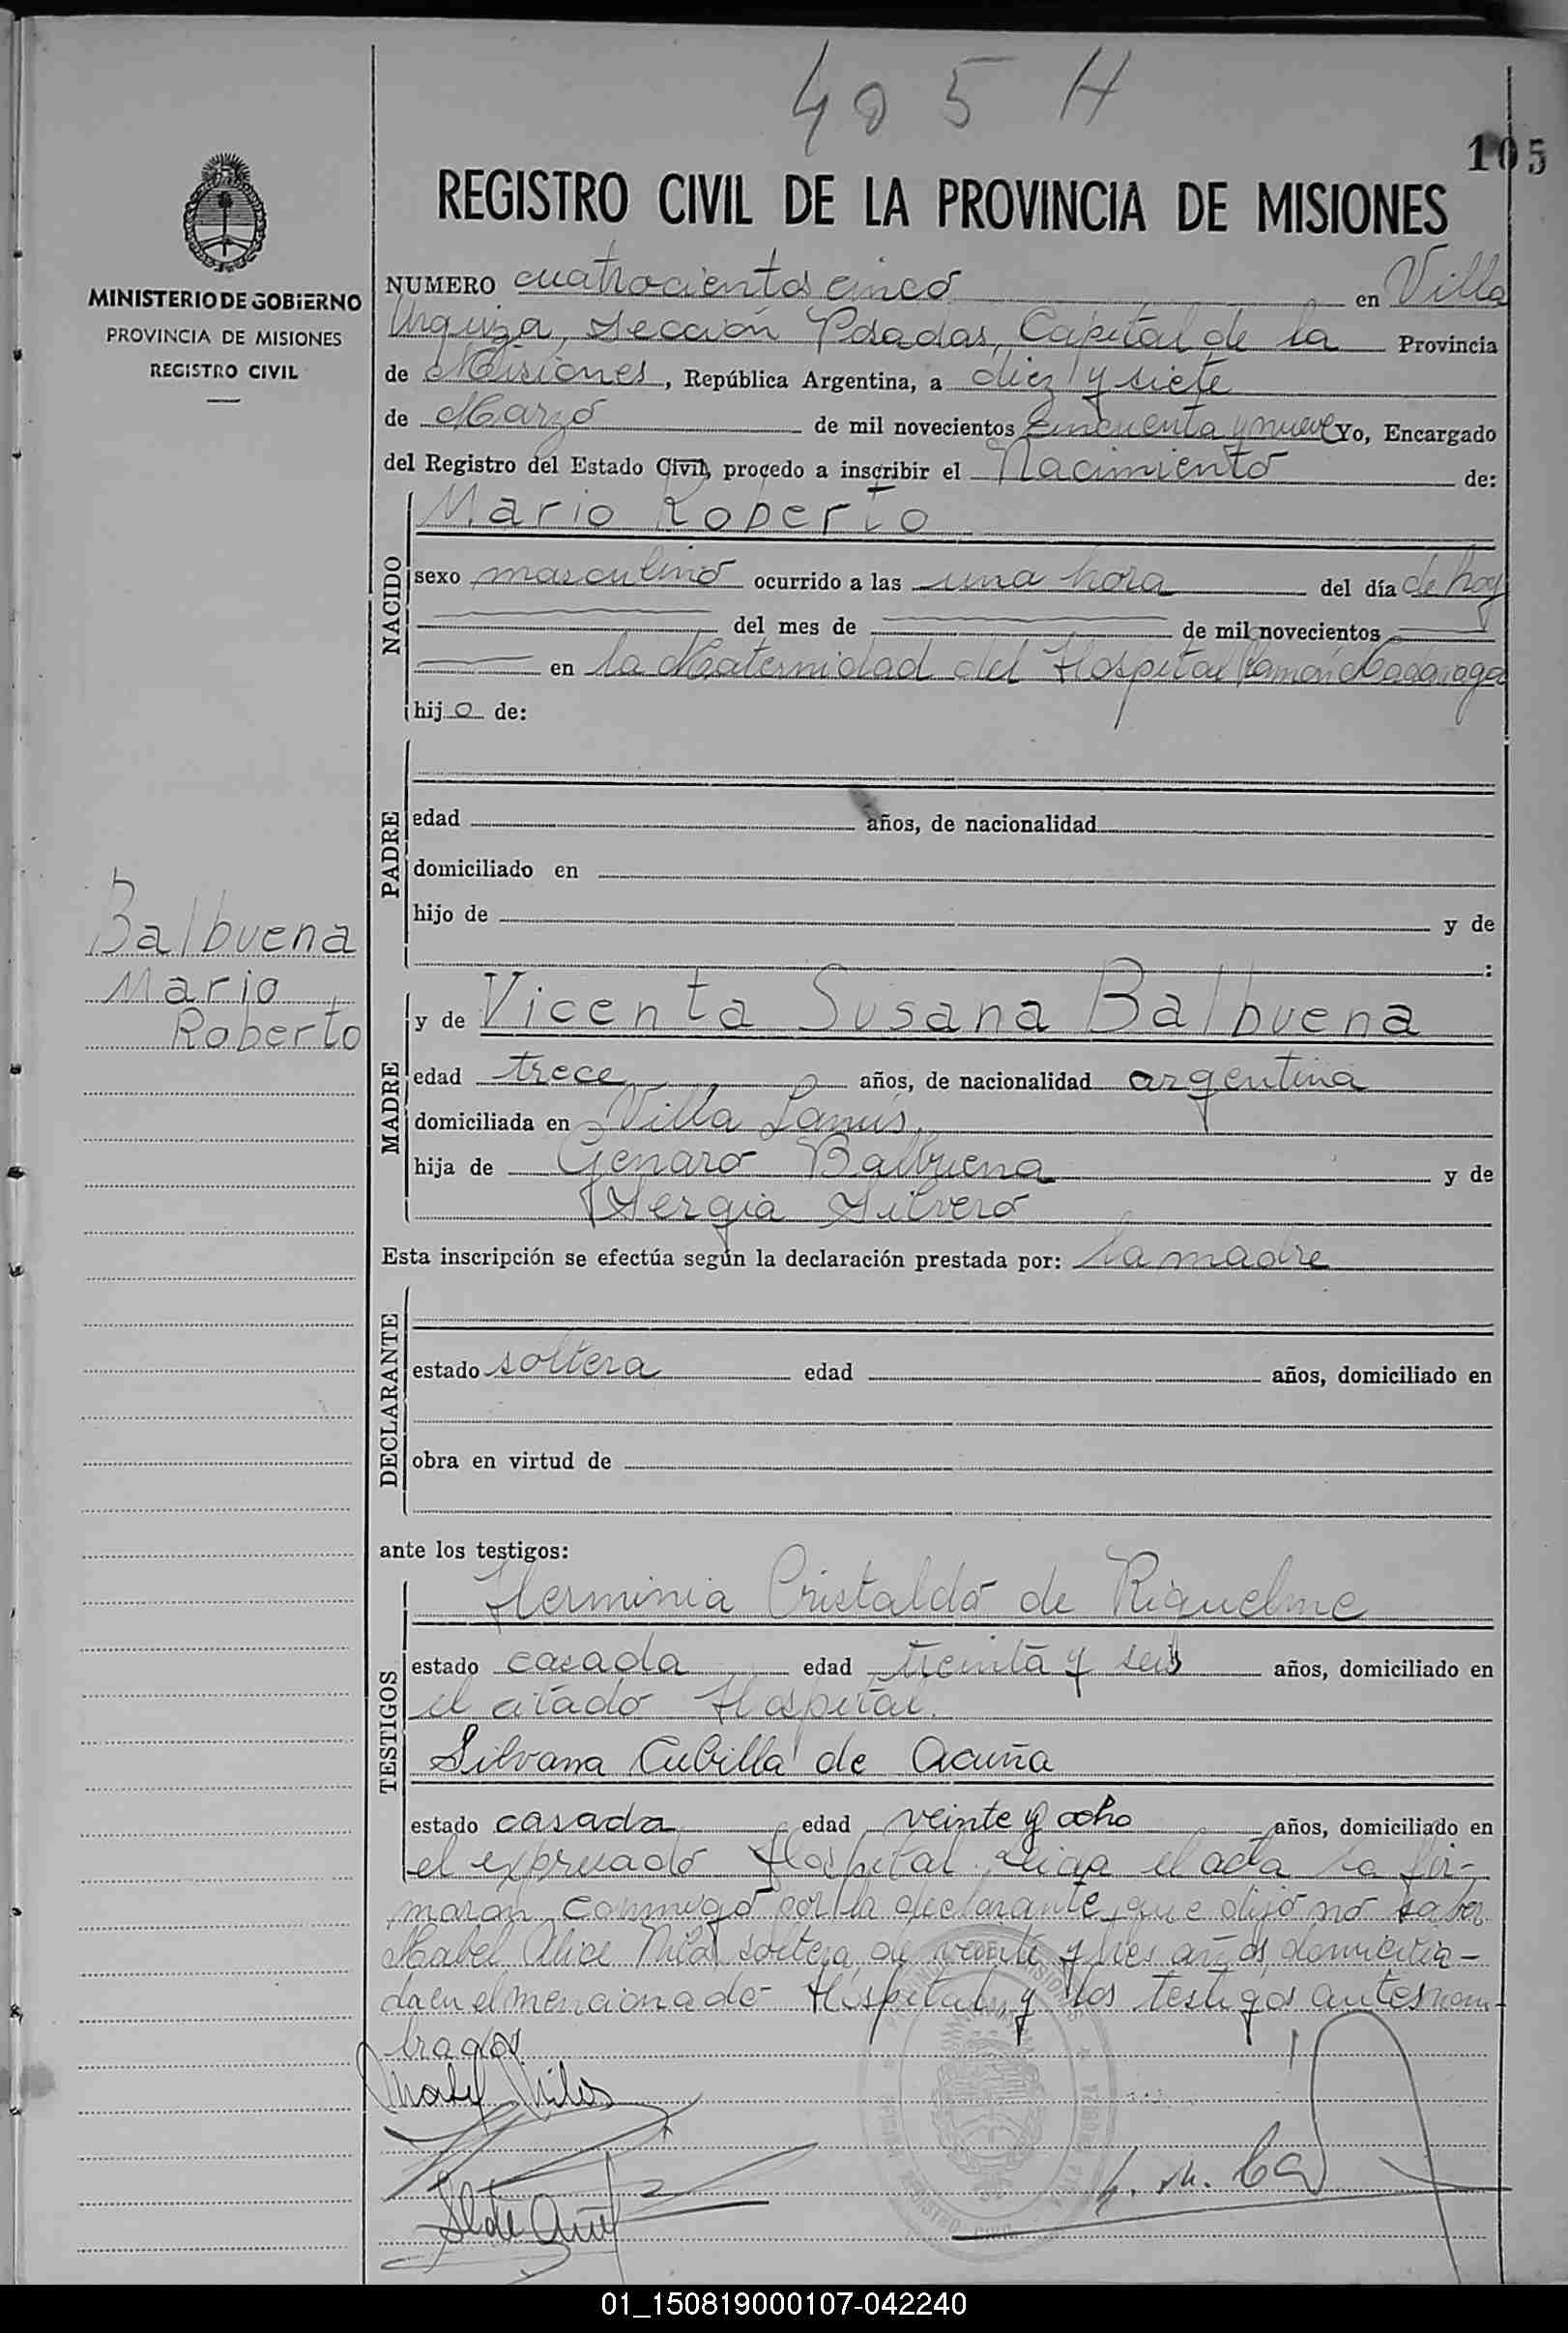 405 H
105
REGISTRO CIVIL DE LA PROVINCIA DE MISIONES
MINISTERIO DE GOBIERNO
PROVINCIA DE MISIONES
REGISTRO CIVIL
NUMERO cuatrocientos cinco en Villa
Urquiza, Sección Posadas, Capital de la Provincia
de Misiones, República Argentina, a diez y siete
de Marzo de mil novecientos cincuenta y nueve Yo, Encargado
del Registro del Estado Civil, procedo a inscribir el Nacimiento de:
NACIDO
Mario Roberto
sexo masculino ocurrido a las una hora del día de hoy
del mes de de mil novecientos
en la Maternidad del Hospital Ramón Madariaga
hijo de:
PADRE
edad años, de nacionalidad
domiciliado en
hijo de y de
:
Balbuena
Mario
Roberto
MADRE
y de Vicenta Susana Balbuena
edad trece años, de nacionalidad argentina
domiciliada en Villa Lanús,
hija de Genaro Balbuena y de
Sergia Silvero
Esta inscripción se efectúa según la declaración prestada por: la madre
DECLARANTE
estado soltera edad años, domiciliado en
obra en virtud de
ante los testigos:
TESTIGOS
Herminia Cristaldo de Riquelme
estado casada edad treinta y seis años, domiciliado en
el citado Hospital.
Silvana Cubilla de Acuña
estado casada edad veinte y ocho años, domiciliado en
el expresado Hospital. Leída el acta la fir-
maron conmigo por la declarante, que dijo no saber
Mabel Alice Milos soltera, de veinte y tres años, domicilia-
da en el mencionado Hospital, y los testigos antes nom-
brados.
Mabel Milos
S C de Acuña
01_150819000107-042240